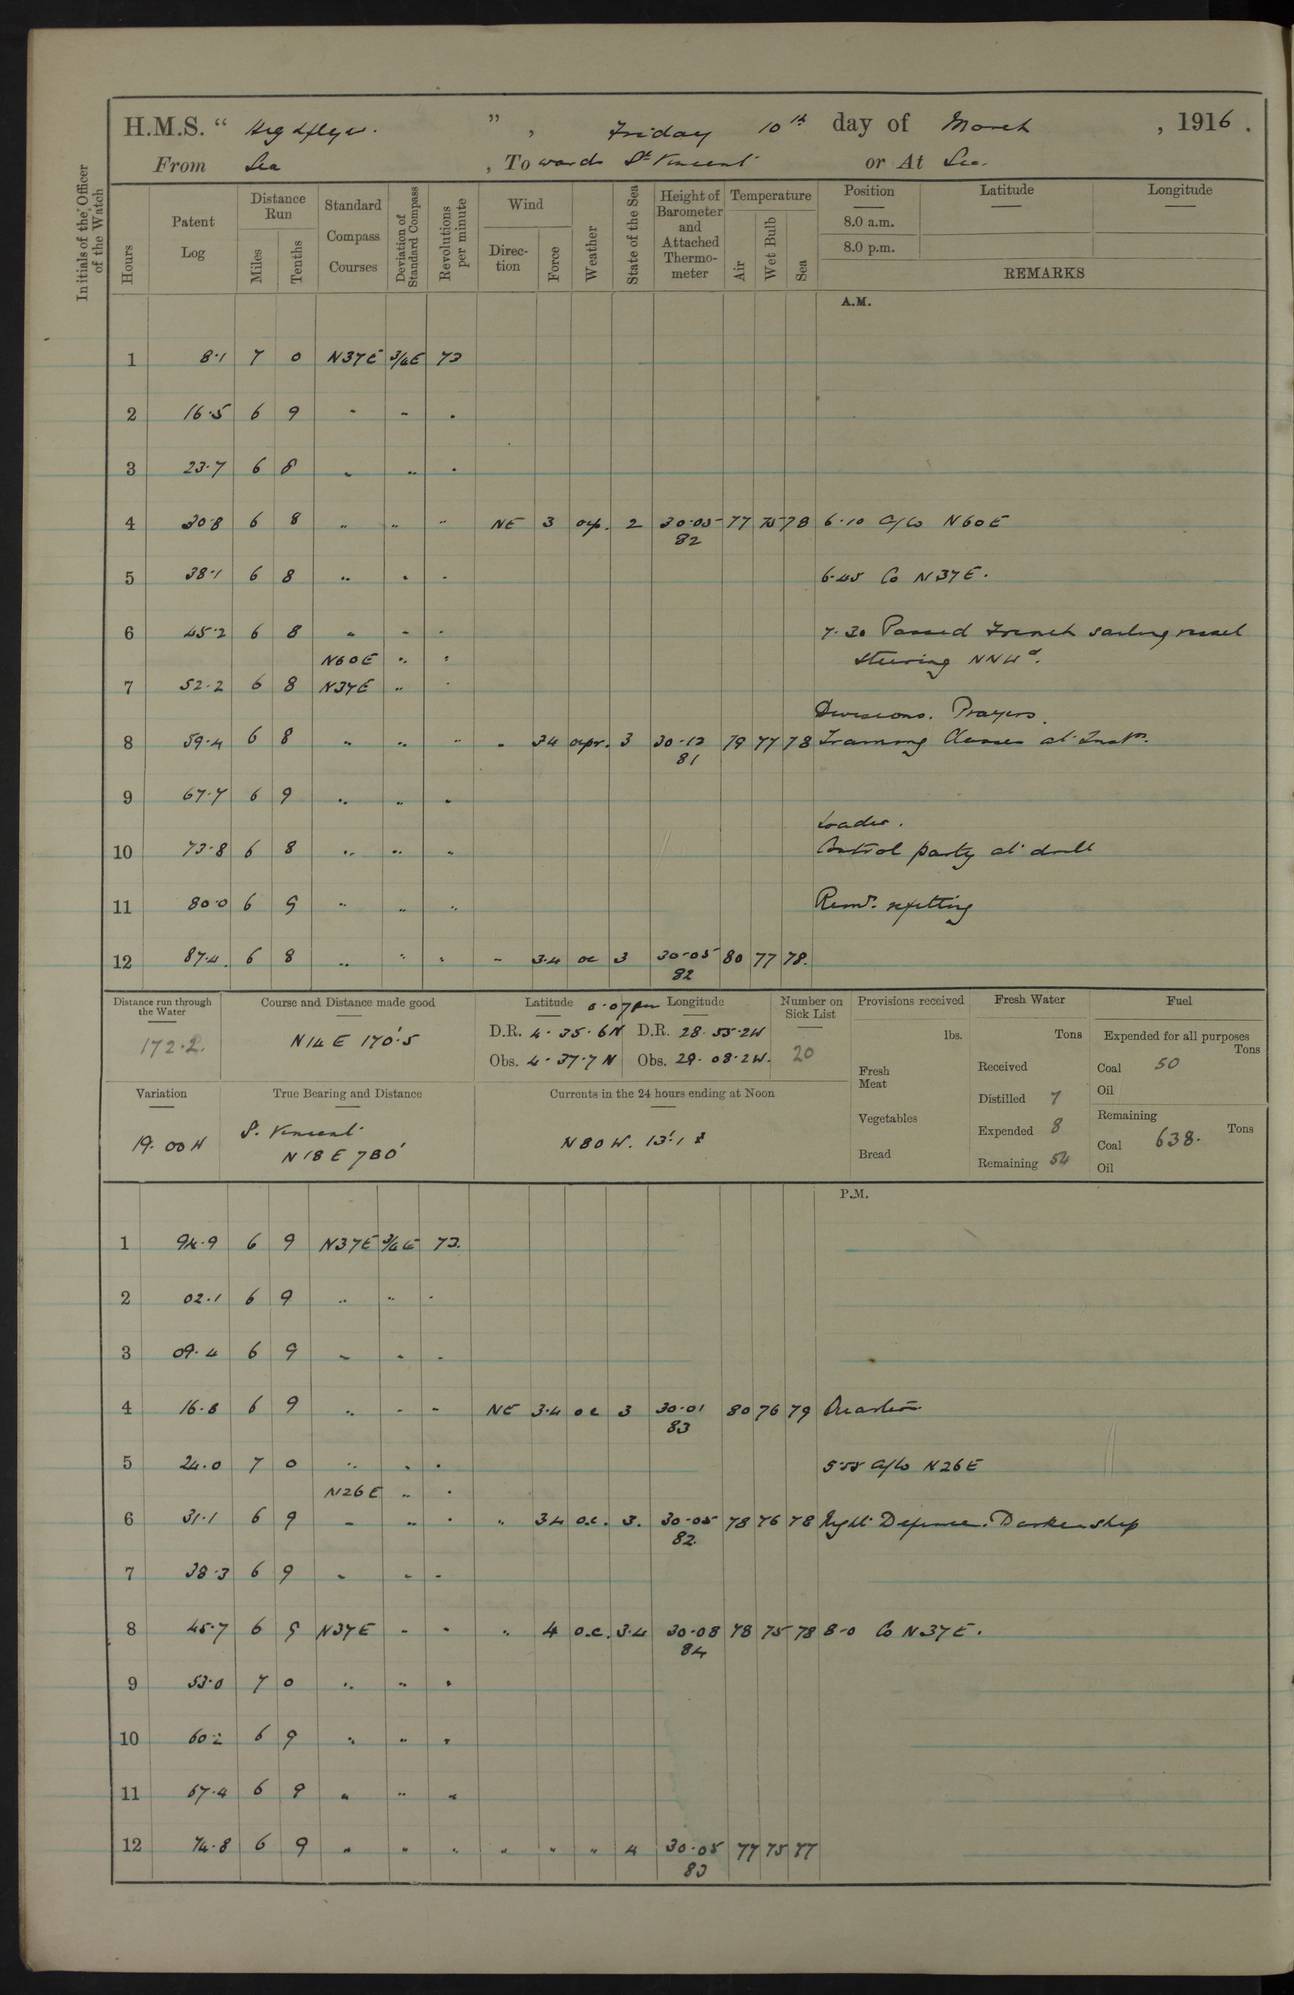 H.M.S. “ Highflyer. ” , Friday 10th day of March , 1916.
From Sea , Towards St Vincent or At Sea.
Initials of the Officer of the Watch
Hours
Patent Log
Distance Run
Miles
Tenths
Standard Compass Courses
Deviation of Standard Compass
Revolutions per minute
Wind
Direction
Force
Weather
State of the Sea
Height of Barometer and Attached Thermometer
Temperature
Air
Wet Bulb
Sea
Position
Latitude
Longitude
8.0 a.m.
8.0 p.m.
REMARKS
A.M.
1 8.1 7 0 N37E 3/4E 72
2 16.5 6 9 " " "
3 23.7 6 8 " " "
4 30.8 6 8 " " " NE 3 2 30.05 77 75 78 6.10 A/Co N60E
82
5 38.1 6 8 " " " 6.45 Co N37E.
6 45.2 6 8 " " " 7.30 Passed French sailing vessel
N60E " " steering NNWd.
7 52.2 6 8 N37E " "
Divisions. Prayers.
8 59.4 6 8 " " " " 3.4 3 30.12 79 77 78 Training Classes at Instn.
81
9 67.7 6 9 " " "
Loader.
10 73.8 6 8 " " " Control party at drill
11 80.0 6 9 " " " Remr. refitting
12 87.4. 6 8 " " " " 3.4 oc 3 30.05 80 77 78.
82
Distance run through the Water
172.2.
Course and Distance made good
N14E 170'.5
Latitude Longitude
D.R. 4.35.6N D.R. 28.55.2W
Obs. 4.37.7N Obs. 29.08.2W.
Number on Sick List
20
Provisions received
lbs.
Fresh Meat
Vegetables
Bread
Fresh Water
Tons
Received
Distilled 7
Expended 8
Remaining 54
Fuel
Expended for all purposes
Tons
Coal 50
Oil
Remaining
Tons
Coal 638.
Oil
Variation
19.00W
True Bearing and Distance
S. Vincent
N18E 780'
Currents in the 24 hours ending at Noon
N80W. 13'.1
P.M.
1 94.9 6 9 N37E 3/4E 72.
2 02.1 6 9 " " "
3 09.4 6 9 " " "
4 16.8 6 9 " " " NE 3.4 oc 3 30.01 80 76 79 Quarters.
83
5 24.0 7 0 " " " 5.55 A/Co N26E
N26E " "
6 31.1 6 9 " " " " 3.4 o.c. 3. 30.05 78 76 78 Night Defence. Darken ship
82.
7 38.3 6 9 " " "
8 45.7 6 9 N37E " " " 4 o.c. 3.4 30.08 78 75 78 8.0 Co N37E.
84
9 53.0 7 0 " " "
10 60.2 6 9 " " "
11 67.4 6 9 " " "
12 74.8 6 9 " " " " " " 4 30.05 77 75 77
83